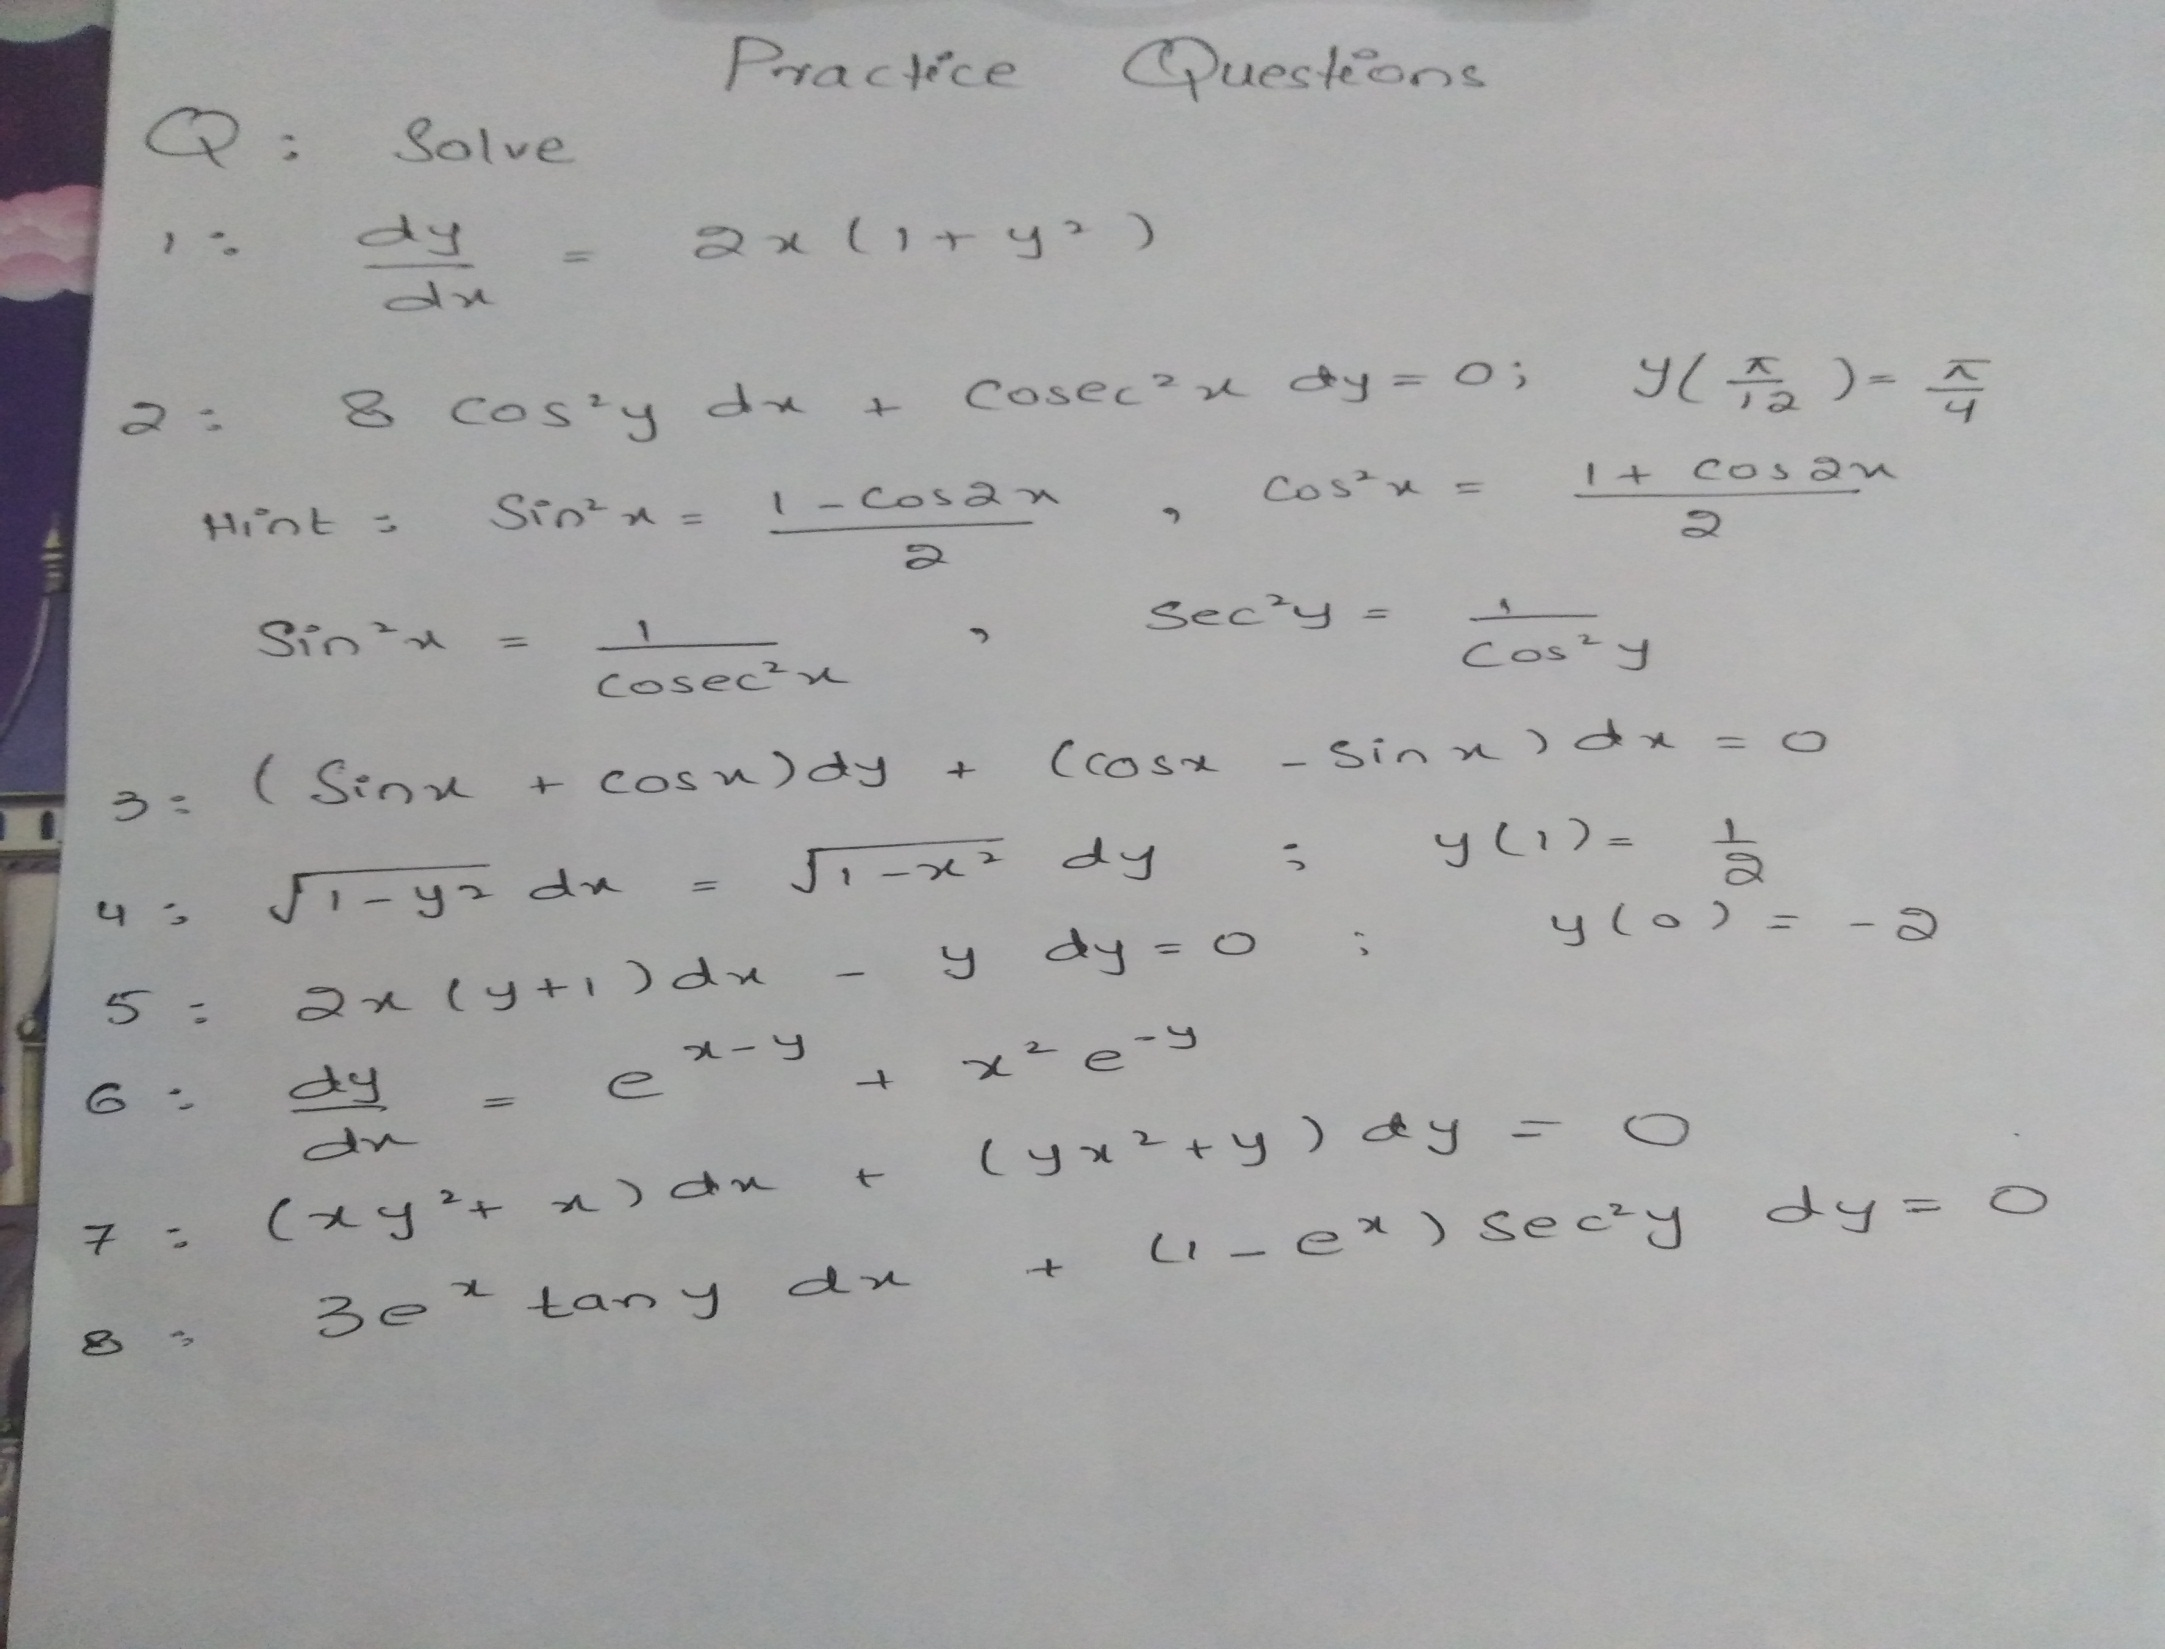 Practice Questions
Q: Solve
1: dy/dx = 2x(1+y²)
2: 8 cos²y dx + cosec²x dy = 0; y(π/12) = π/4
Hint: Sin²x = (1 - cos2x)/2 , cos²x = (1 + cos2x)/2
Sin²x = 1/cosec²x , Sec²y = 1/cos²y
3: (Sinx + cosx)dy + (cosx - sinx)dx = 0
4: √(1-y²) dx = √(1-x²) dy ; y(1) = 1/2
5: 2x(y+1)dx - y dy = 0 ; y(0) = -2
6: dy/dx = e^(x-y) + x²e^(-y)
7: (xy² + x)dx + (yx² + y)dy = 0
8: 3e^x tany dx + (1 - e^x) sec²y dy = 0